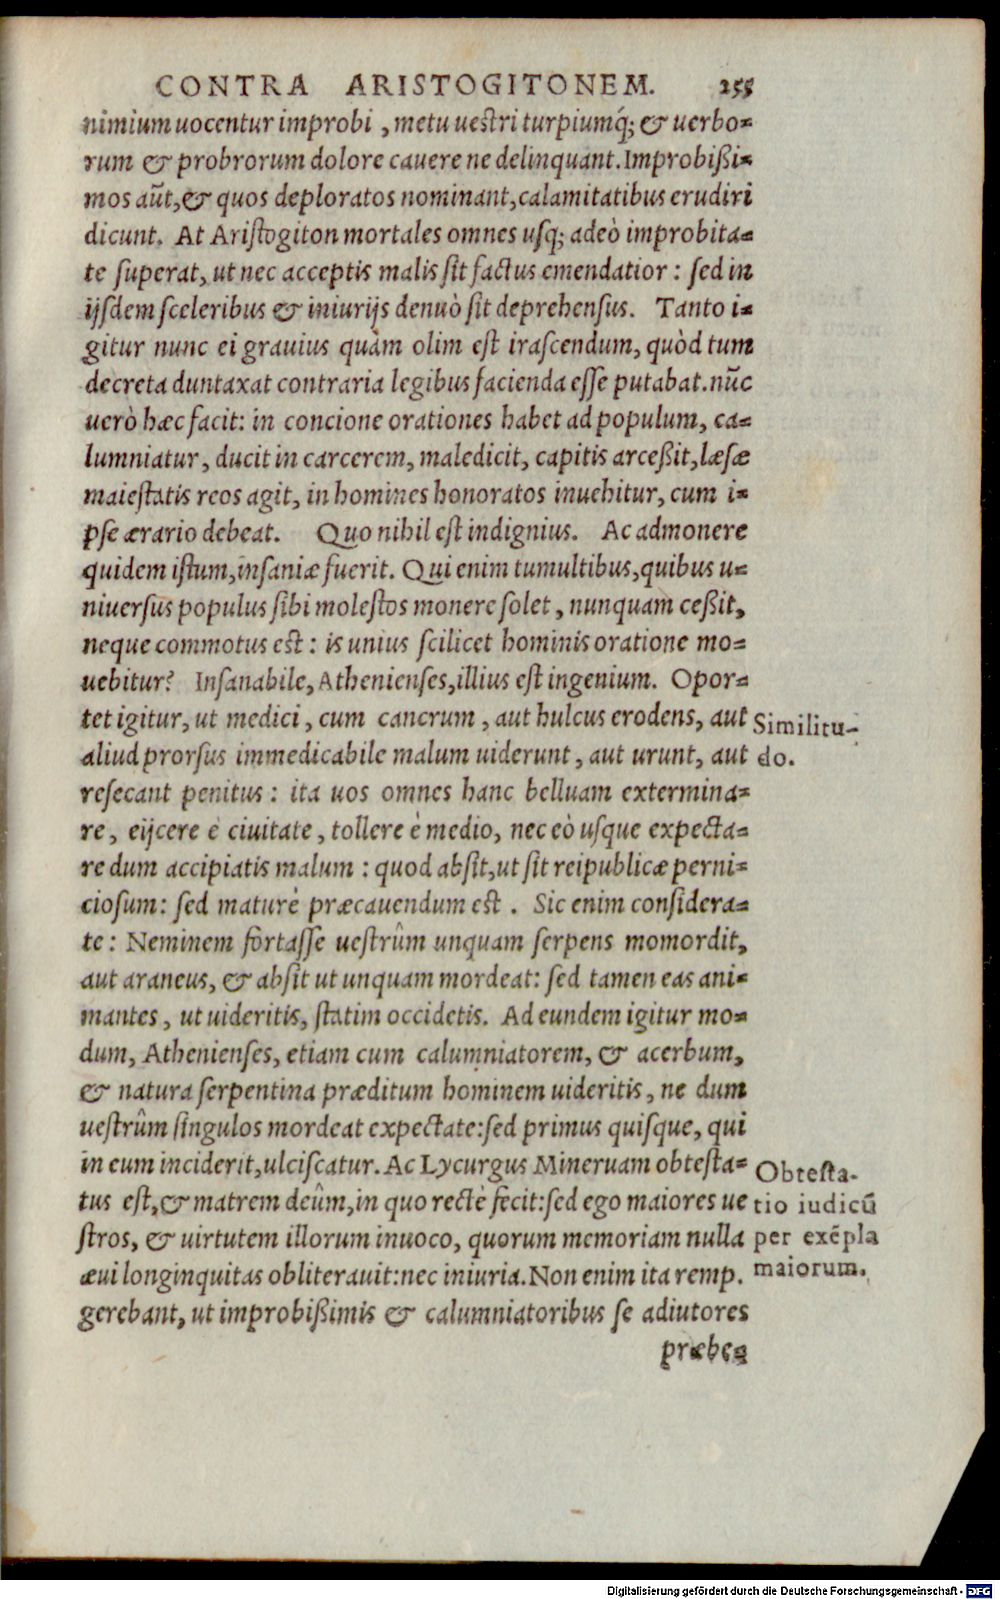 CONTRA ARISTOGITONEM. 255
nimium uocentur improbi, metu uestri turpiumq́; & uerbo-
rum & probrorum dolore cauere ne delinquant. Improbißi-
mos aũt, & quos deploratos nominant, calamitatibus erudiri
dicunt. At Aristogiton mortales omnes usq; adeò improbita-
te superat, ut nec acceptis malis sit factus emendatior: sed in
ijsdem sceleribus & iniurijs denuò sit deprehensus. Tanto i-
gitur nunc ei grauius quàm olim est irascendum, quòd tum
decreta duntaxat contraria legibus facienda esse putabat. nũc
uerò hæc facit: in concione orationes habet ad populum, ca-
lumniatur, ducit in carcerem, maledicit, capitis arceßit, læsæ
maiestatis reos agit, in homines honoratos inuehitur, cum i-
pse ærario debeat. Quo nihil est indignius. Ac admonere
quidem istum, insaniæ fuerit. Qui enim tumultibus, quibus u-
niuersus populus sibi molestos monere solet, nunquam ceßit,
neque commotus est: is unius scilicet hominis oratione mo-
uebitur? Insanabile, Athenienses, illius est ingenium. Opor-
tet igitur, ut medici, cum cancrum, aut hulcus erodens, aut
aliud prorsus immedicabile malum uiderunt, aut urunt, aut
resecant penitus: ita uos omnes hanc belluam extermina-
re, eijcere è ciuitate, tollere è medio, nec eò usque expecta-
re dum accipiatis malum: quod absit, ut sit reipublicæ perni-
ciosum: sed maturè præcauendum est. Sic enim considera-
te: Neminem fortasse uestrûm unquam serpens momordit,
aut araneus, & absit ut unquam mordeat: sed tamen eas ani-
mantes, ut uideritis, statim occidetis. Ad eundem igitur mo-
dum, Athenienses, etiam cum calumniatorem, & acerbum,
& natura serpentina præditum hominem uideritis, ne dum
uestrûm singulos mordeat expectate: sed primus quisque, qui
in eum inciderit, ulciscatur. Ac Lycurgus Mineruam obtesta-
tus est, & matrem deûm, in quo rectè fecit: sed ego maiores ue
stros, & uirtutem illorum inuoco, quorum memoriam nulla
æui longinquitas obliterauit: nec iniuria. Non enim ita remp.
gerebant, ut improbißimis & calumniatoribus se adiutores
præbe-
Similitu-
do.
Obtesta-
tio iudicũ
per exẽpla
maiorum.
Digitalisierung gefördert durch die Deutsche Forschungsgemeinschaft - DFG